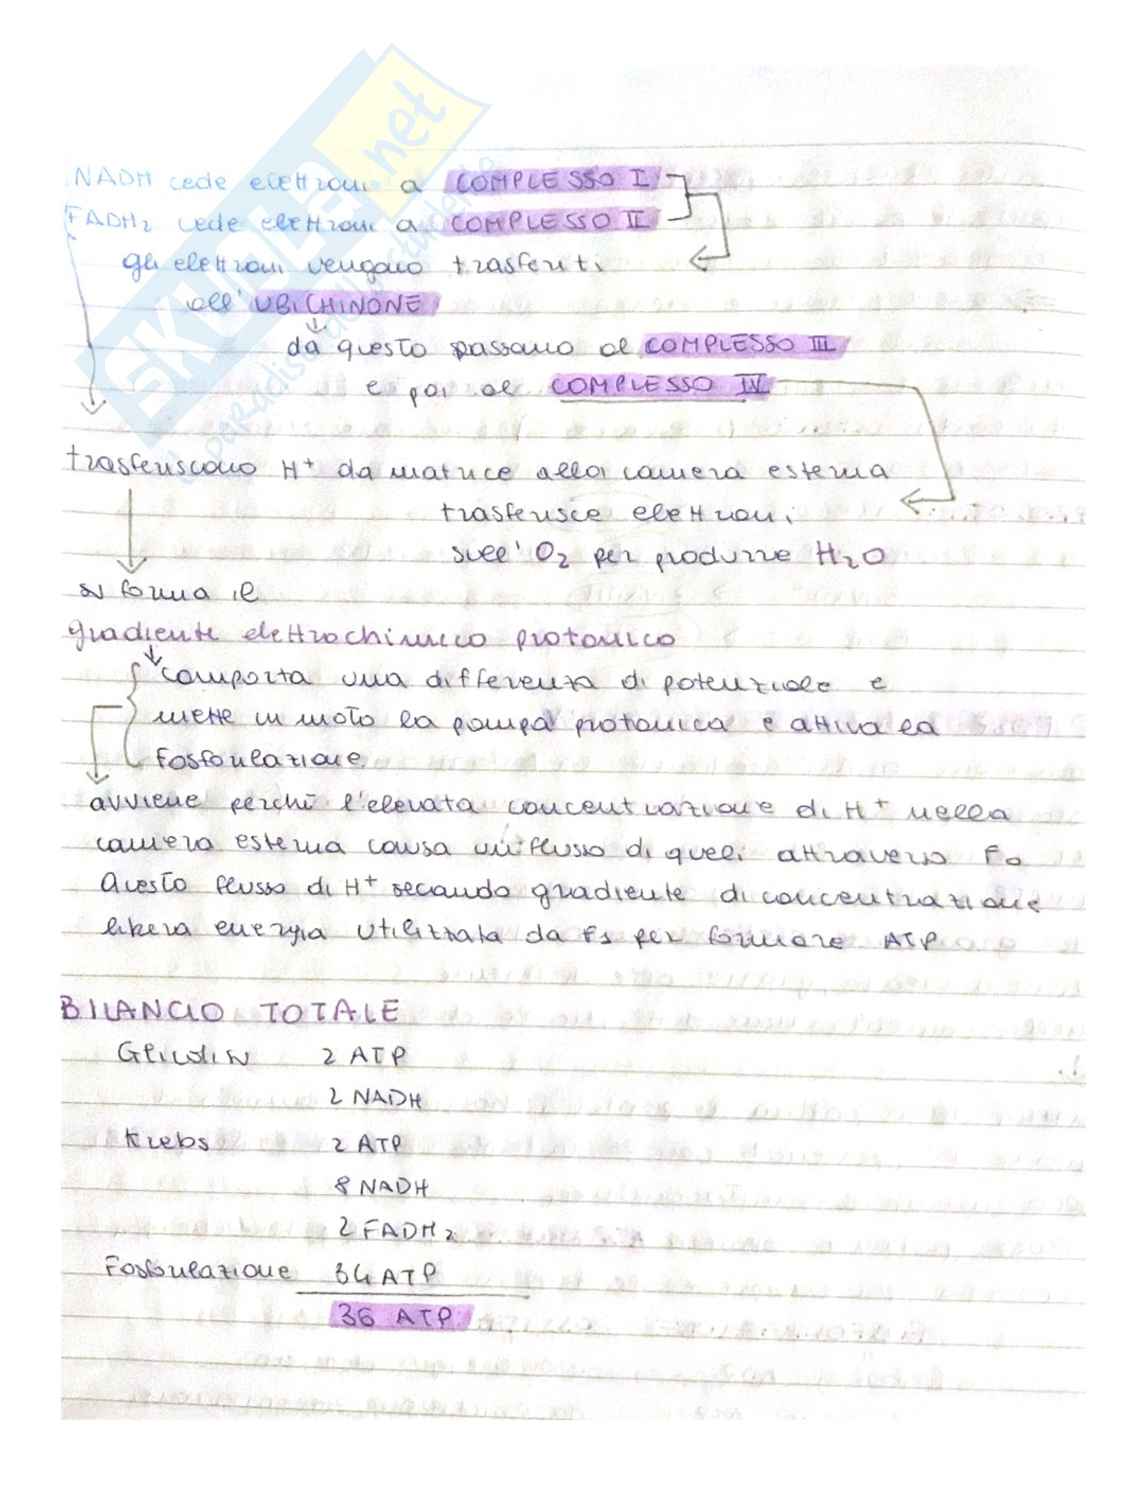 NADH cede elettroni a COMPLESSO I
FADH2 cede elettroni a COMPLESSO II
gli elettroni vengono trasferiti
all'UBICHINONE
da questo passano al COMPLESSO III
e poi al COMPLESSO IV
trasferiscono H+ da matrice alla camera esterna
trasferisce elettroni
sull'O2 per produrre H2O
si forma il
gradiente elettrochimico protonico
comporta una differenza di potenziale e
mette in moto la pompa protonica e attiva la
fosforilazione
avviene perchè l'elevata concentrazione di H+ nella
camera esterna causa un flusso di quelli attraverso Fo
Questo flusso di H+ secondo gradiente di concentrazione
libera energia utilizzata da F1 per formare ATP
BILANCIO TOTALE
Glicolisi 2 ATP
2 NADH
Krebs 2 ATP
8 NADH
2 FADH2
Fosforilazione 34 ATP
36 ATP
SKUOLA.net
il paradiso dello studente